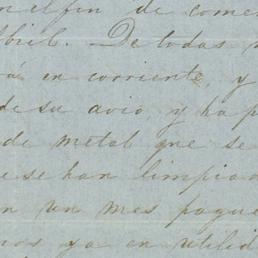 n el fin de comen
bril. De todas
rá en corriente, y
de su avio, y ha p
de metal que se
e se han limpiad
n un mes pague
nos ya en utilid